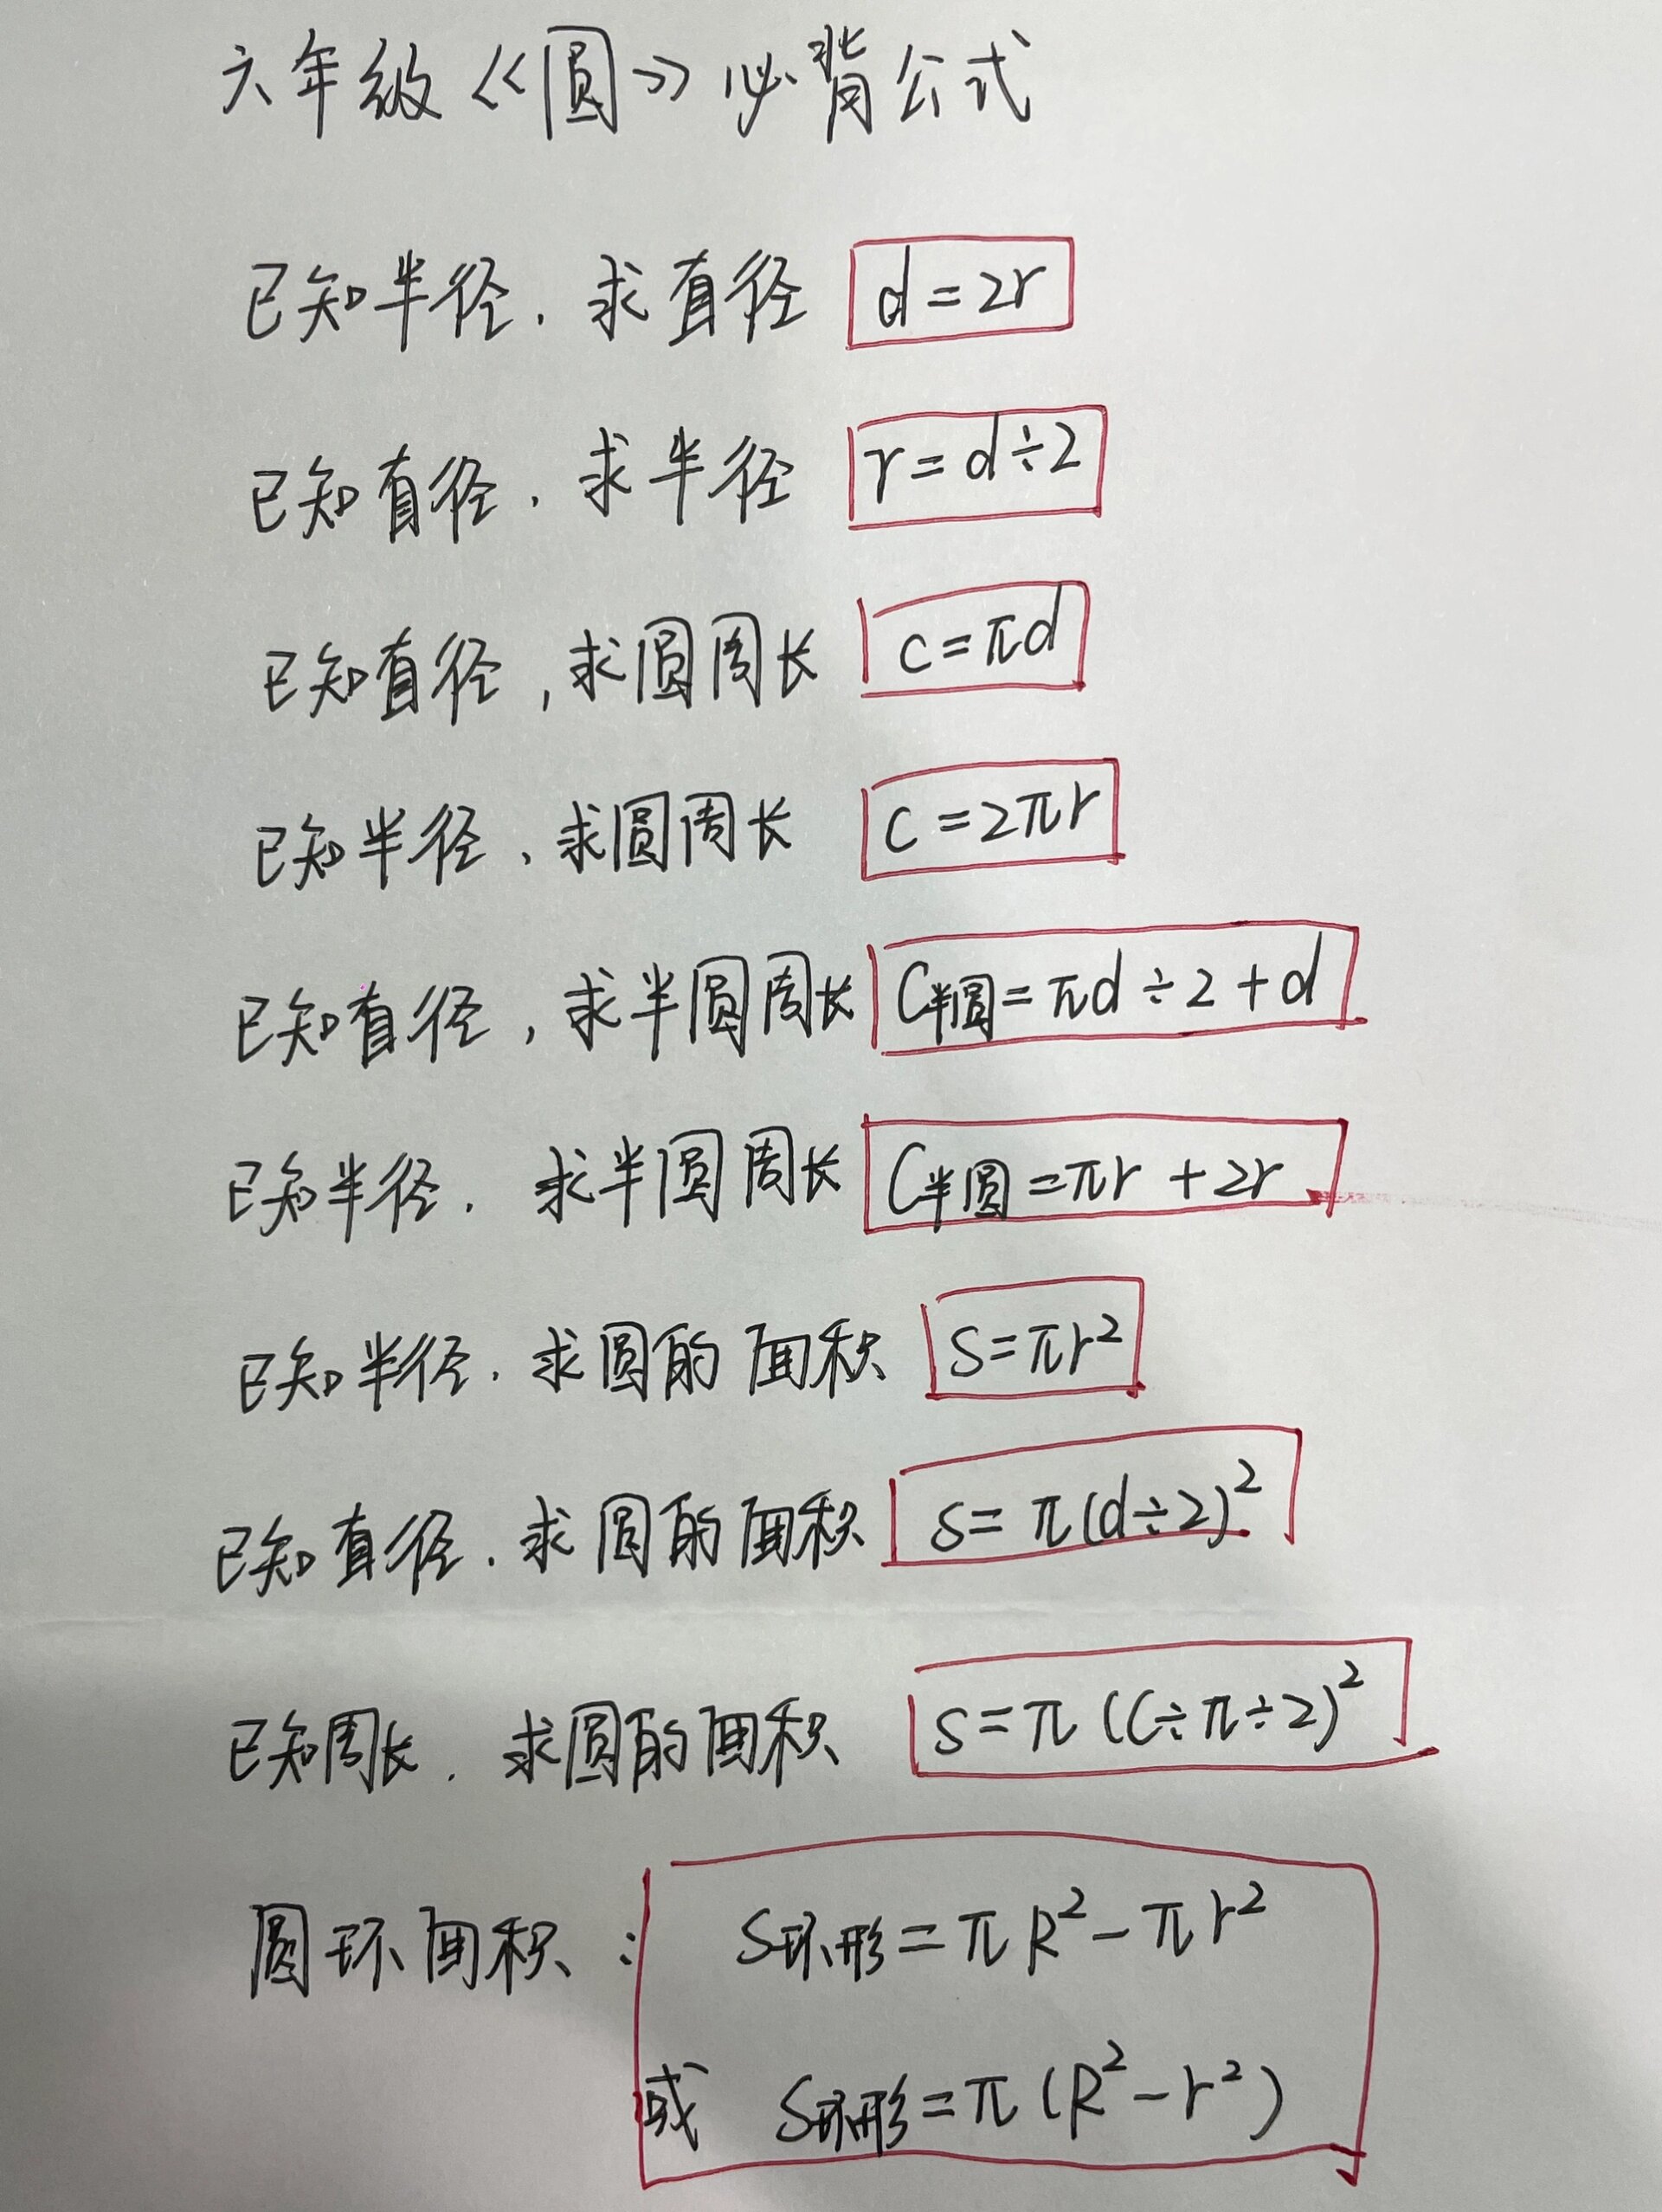 六年级《圆》必背公式
已知半径，求直径 d=2r
已知直径，求半径 r=d÷2
已知直径，求圆周长 c=πd
已知半径，求圆周长 c=2πr
已知直径，求半圆周长 C半圆=πd÷2+d
已知半径，求半圆周长 C半圆=πr+2r
已知半径，求圆的面积 S=πr²
已知直径，求圆的面积 S=π(d÷2)²
已知周长，求圆的面积 S=π(C÷π÷2)²
圆环面积：S环形=πR²-πr²
或 S环形=π(R²-r²)